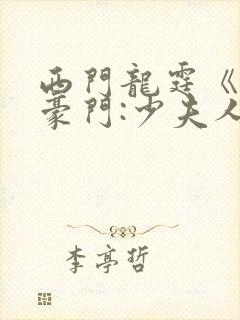 西門龍霆《
豪門:少夫人
李亭哲